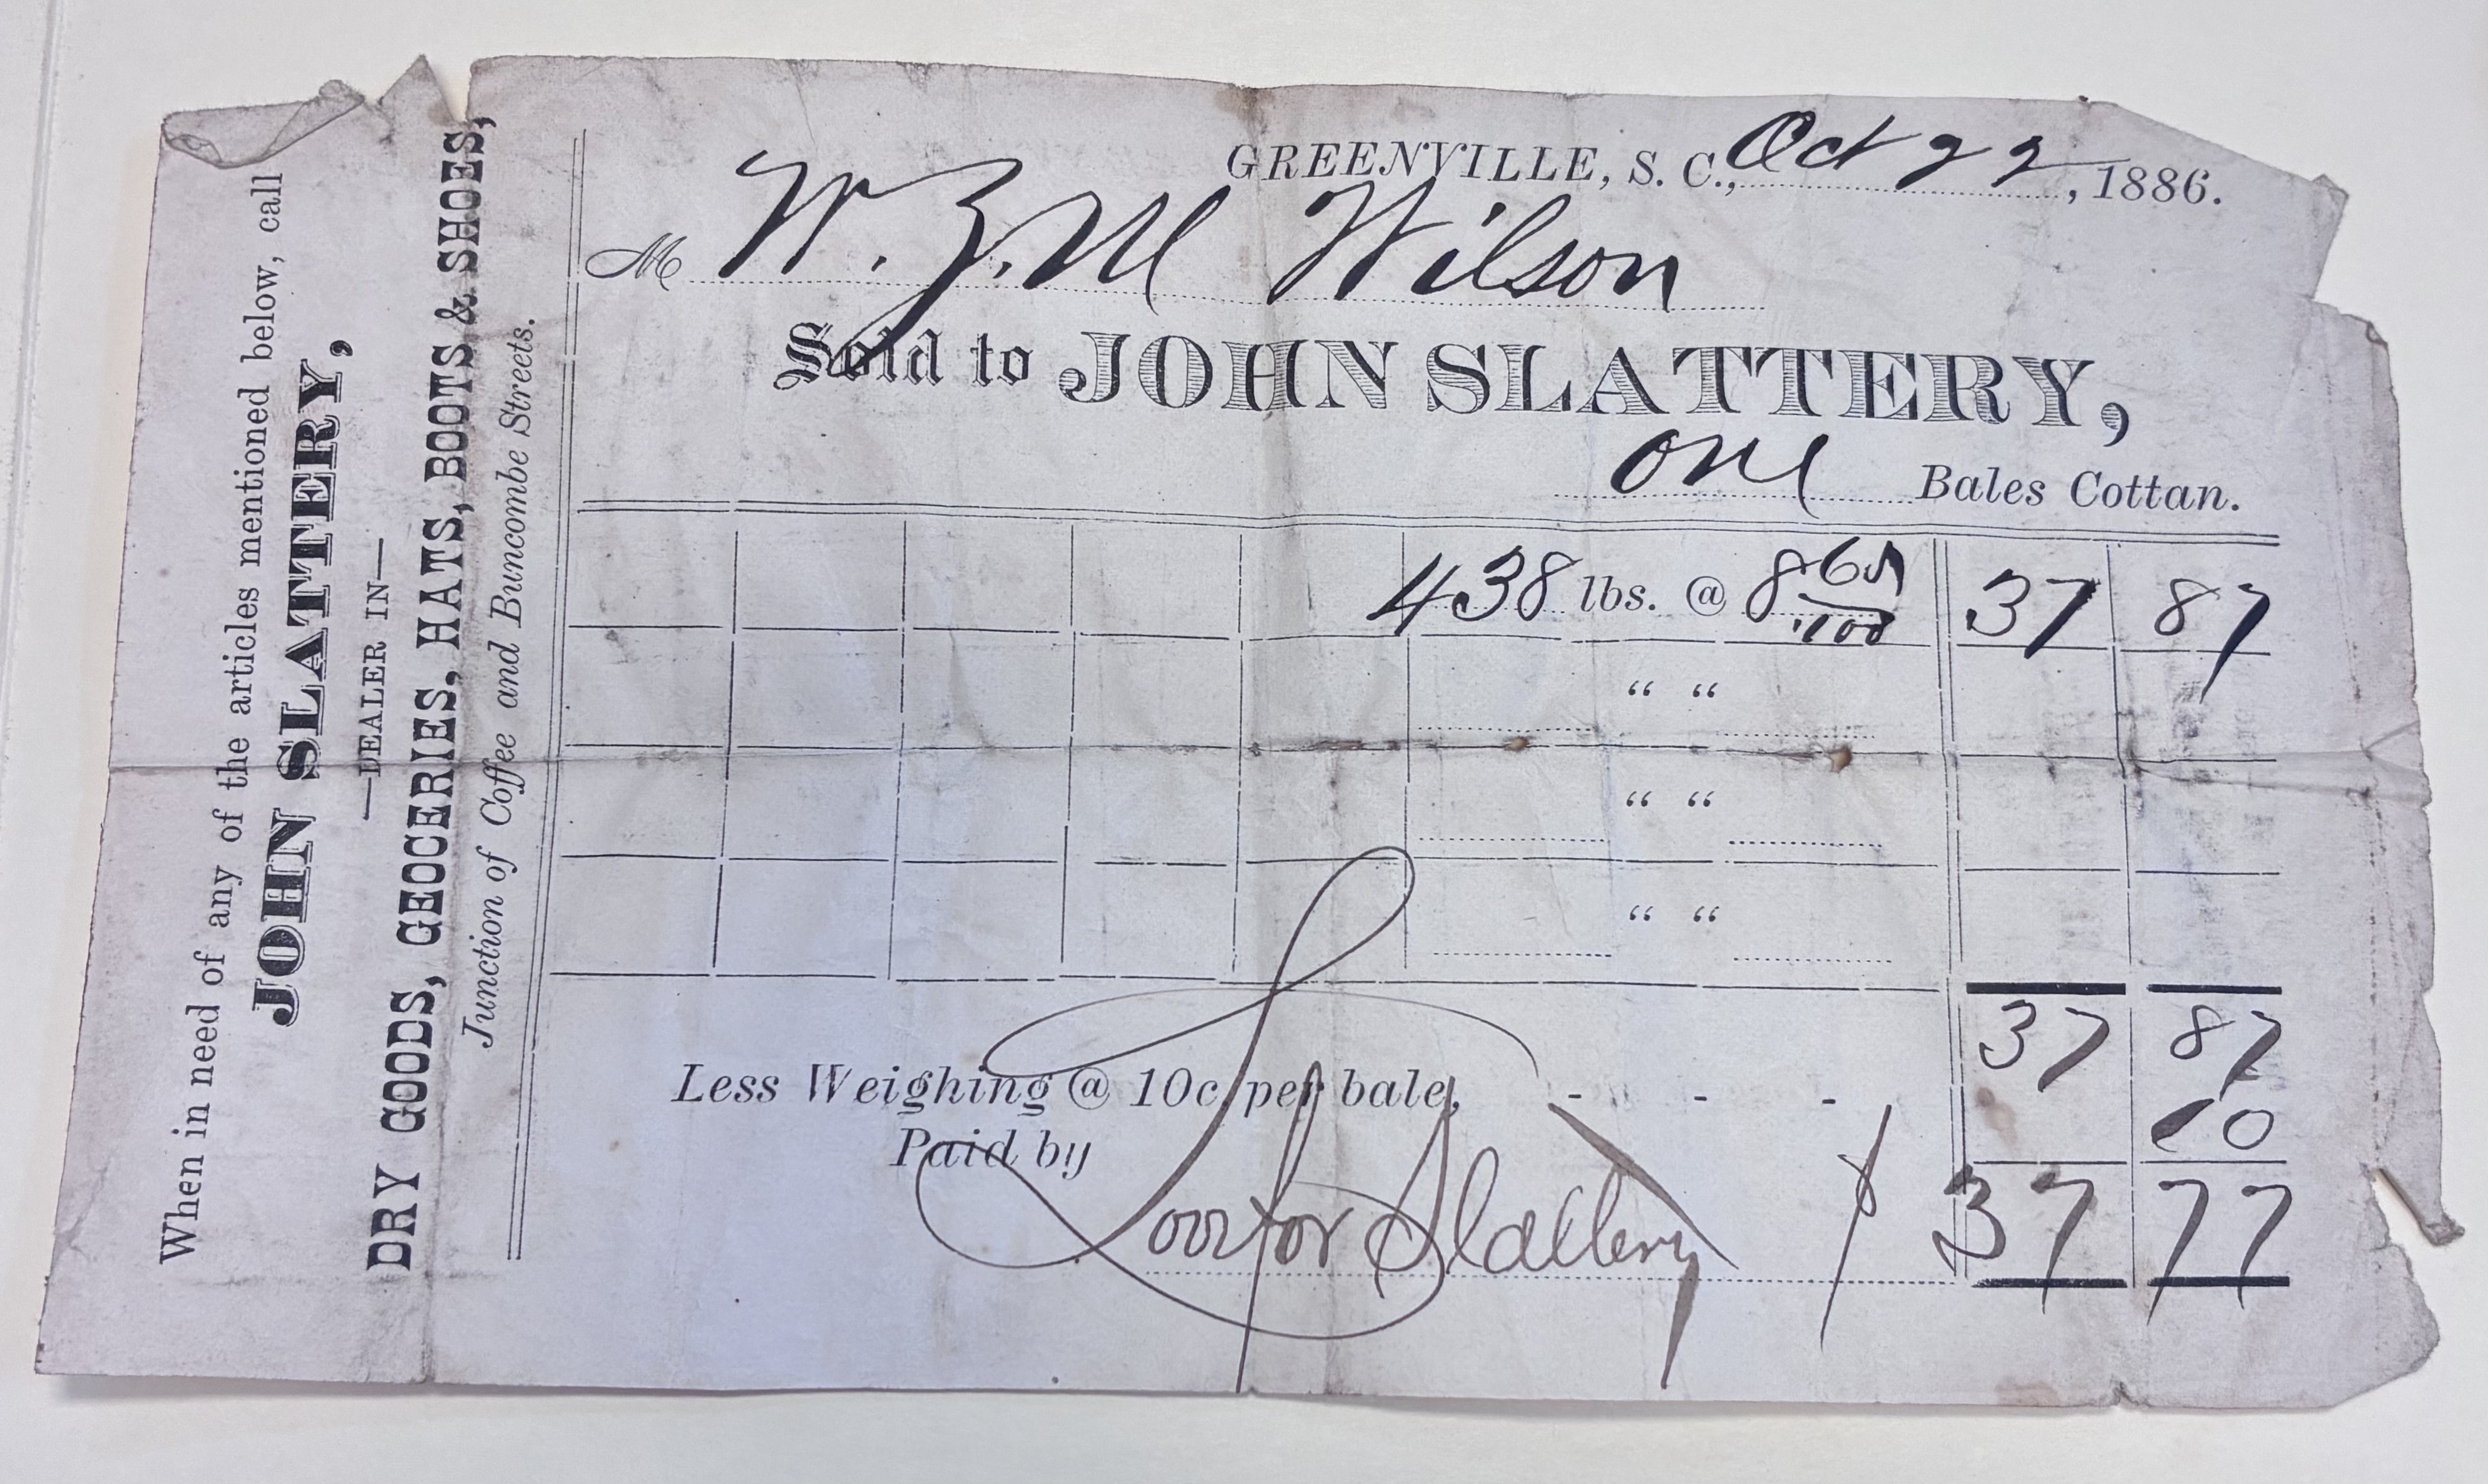 When in need of any of the articles mentioned below, call
JOHN SLATTERY,
—DEALER IN—
DRY GOODS, GEOCERIES, HATS, BOOTS & SHOES,
Junction of Coffee and Buncombe Streets.
GREENVILLE, S. C., Oct 22, 1886.
M W. Z. M Wilson
Sold to JOHN SLATTERY,
one Bales Cottan.
438 lbs. @ 8 65/100 37 87
“ “
“ “
“ “
37 87
Less Weighing @ 10c per bale, - - - 10
Paid by
for Slattery $ 37 77